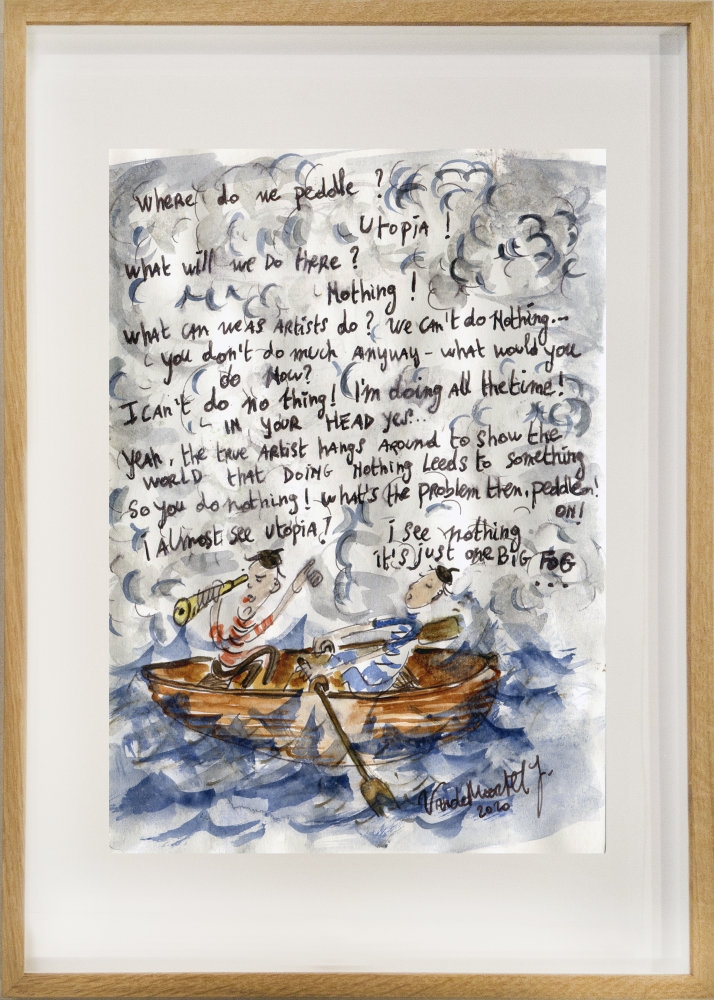 Where do we peddle ?
Utopia !
What will we Do there ?
Nothing !
What can we as Artists do ? We can't do Nothing...
you don't do much Anyway - what would you
do Now?
I can't do no thing! I'm doing All the time!
IN your HEAD yes...
Yeah, the true Artist hangs around to show the
world that Doing Nothing Leeds to something
So you do nothing! What's the problem then, peddle on!
ON!
i Almost see utopia!
i see nothing
it's just one BiG FOG
...
VandeMoortel J.
2020